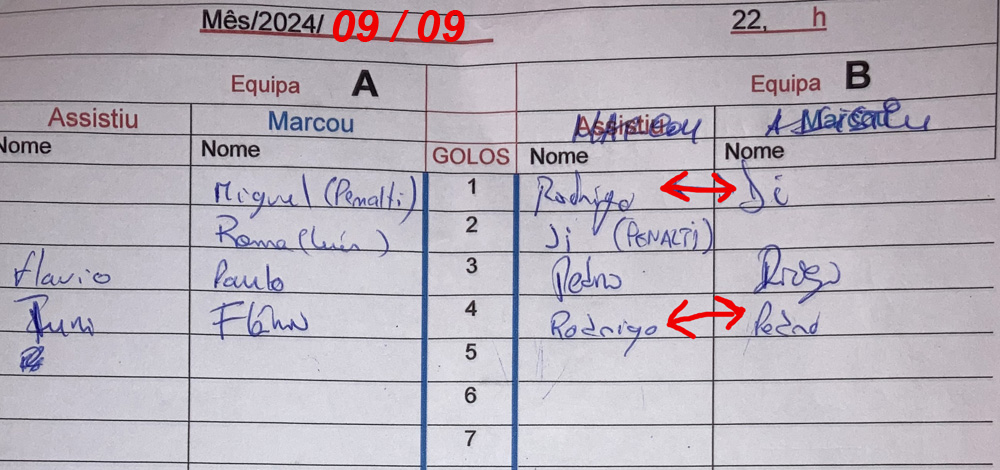 Mês/2024/ 09 / 09 22, h
Equipa A Equipa B
Assistiu Marcou Assistiu MARCOU Marcou ASSISTIU
Nome Nome GOLOS Nome Nome
Miguel (Penalti) 1 Rodrigo Di
Roma (Luís) 2 Ji (PENALTI)
Flavio Paulo 3 Pedro Diogo
Runi Flávio 4 Rodrigo Pedro
5
6
7